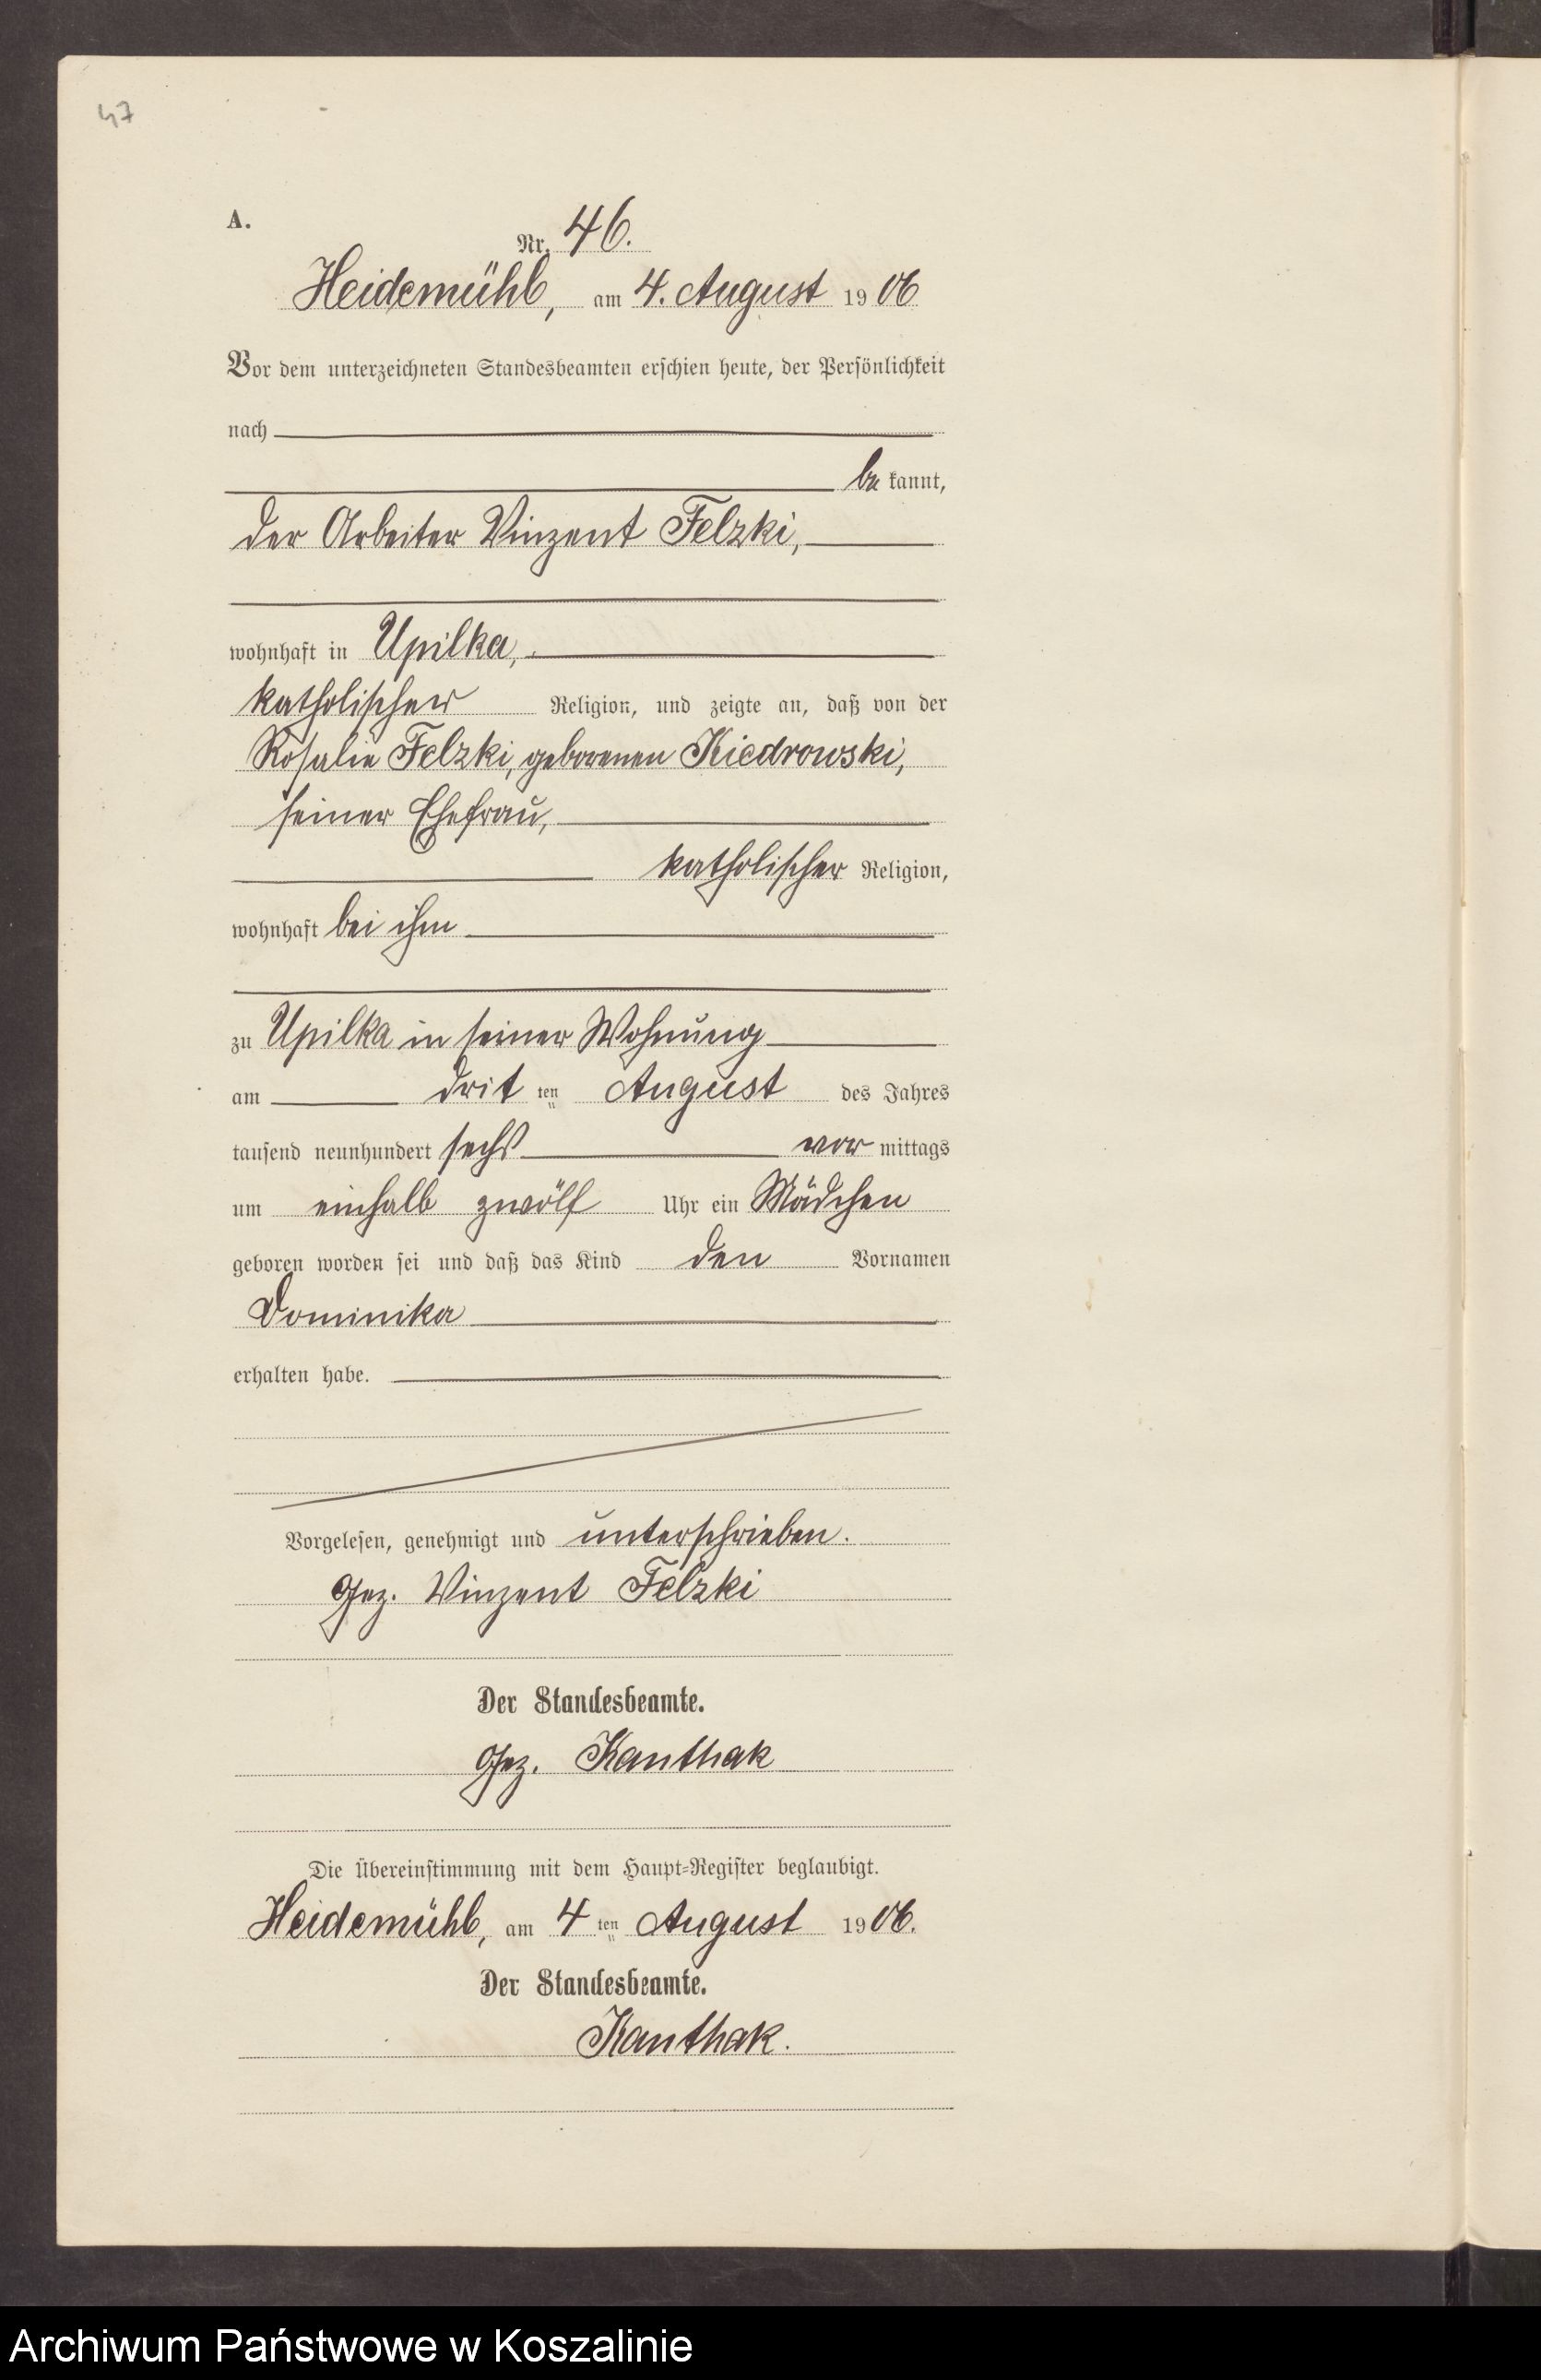 47
A.
Nr. 46.
Heidemühl, am 4. August 1906
Vor dem unterzeichneten Standesbeamten erschien heute, der Persönlichkeit
nach
be kannt,
der Arbeiter Vinzent Felzki,
wohnhaft in Upilka,
katholischer Religion, und zeigte an, daß von der
Rosalie Felzki, geborenen Kiedrowski,
seiner Ehefrau,
katholischer Religion,
wohnhaft bei ihm
zu Upilka in seiner Wohnung
am drit ten August des Jahres
tausend neunhundert sechs vor mittags
um einhalb zwölf Uhr ein Mädchen
geboren worden sei und daß das Kind den Vornamen
Dominika
erhalten habe.
Vorgelesen, genehmigt und unterschrieben.
Gez. Vinzent Felzki
Der Standesbeamte.
Gez. Kanthak
Die Übereinstimmung mit dem Haupt-Register beglaubigt.
Heidemühl, am 4 ten August 1906.
Der Standesbeamte.
Kanthak.
Archiwum Państwowe w Koszalinie